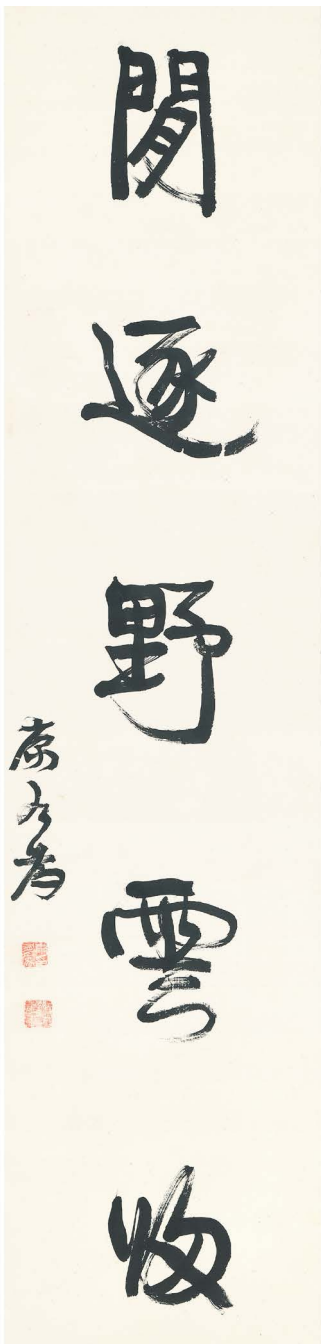 閒逐野雲
康有為